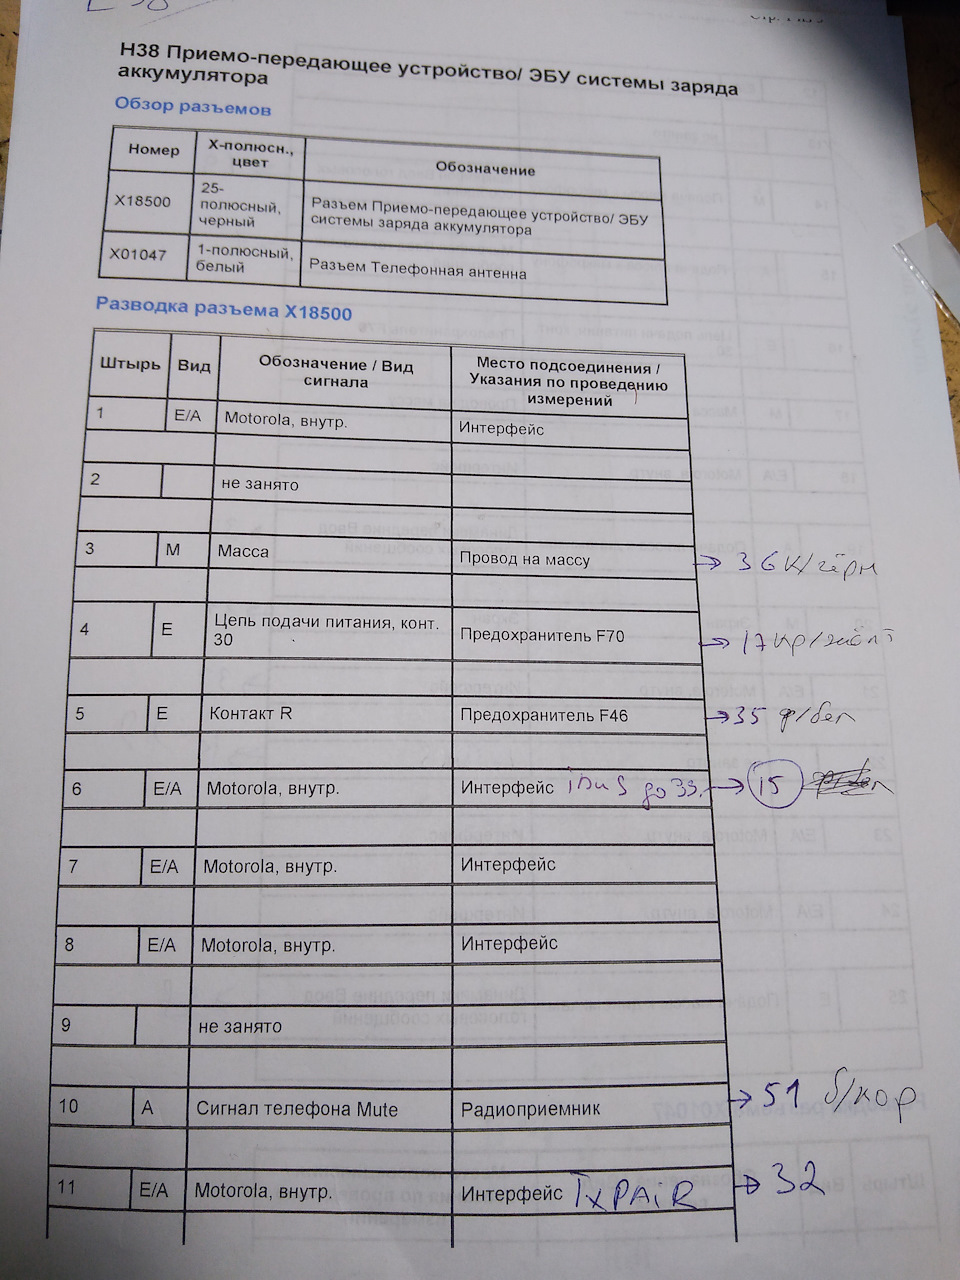 Н38 Приемо-передающее устройство/ ЭБУ системы заряда
аккумулятора
Обзор разъемов
Номер
Х-полюсн.,
цвет
Обозначение
X18500
25-
полюсный,
черный
Разъем Приемо-передающее устройство/ ЭБУ
системы заряда аккумулятора
X01047
1-полюсный,
белый
Разъем Телефонная антенна
Разводка разъема X18500
Штырь
Вид
Обозначение / Вид
сигнала
Место подсоединения /
Указания по проведению
измерений
1 Е/А Motorola, внутр. Интерфейс
2 не занято
3 М Масса Провод на массу → 36 к/чёрн
4 Е Цепь подачи питания, конт.
30
Предохранитель F70 → 17 кр/жёлт
5 Е Контакт R Предохранитель F46 → 35 ф/бел
6 Е/А Motorola, внутр. Интерфейс ibus до 33. → 15
7 Е/А Motorola, внутр. Интерфейс
8 Е/А Motorola, внутр. Интерфейс
9 не занято
10 А Сигнал телефона Mute Радиоприемник → 51 б/кор
11 Е/А Motorola, внутр. Интерфейс TxPAiR → 32